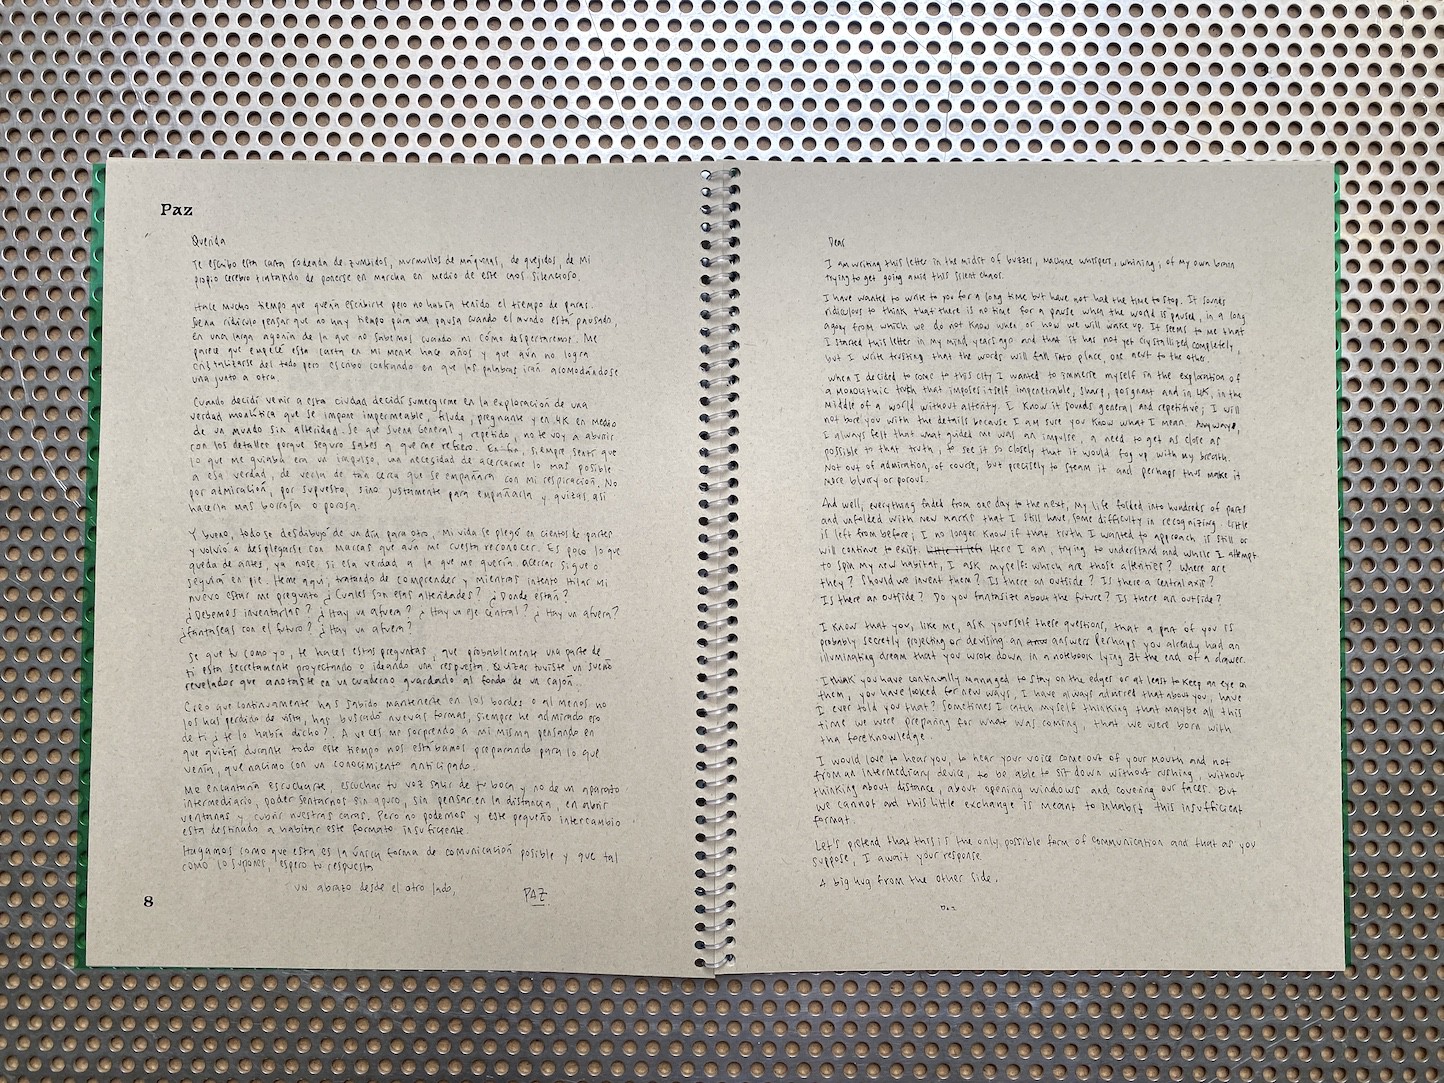 Paz
Querida
Te escribo esta carta rodeada de zumbidos, murmullos de máquinas, de quejidos, de mi
propio cerebro tratando de ponerse en marcha en medio de este caos silencioso.
Hace mucho tiempo que quería escribirte pero no había tenido el tiempo de parar.
Suena ridículo pensar que no hay tiempo para una pausa cuando el mundo está pausado,
en una larga agonía de la que no sabemos cuando ni cómo despertaremos. Me
parece que empecé esta carta en mi mente hace años y que aún no logra
cristalizarse del todo pero escribo confiando en que las palabras irán acomodándose
una junto a otra.
Cuando decidí venir a esta ciudad decidí sumergirme en la exploración de una
verdad monolítica que se impone impermeable, filuda, pregnante y en 4K en medio
de un mundo sin alteridad. Se que suena general y repetido, no te voy a aburrir
con los detalles porque seguro sabes a que me refiero. En fin, siempre sentí que
lo que me guiaba era un impulso, una necesidad de acercarme lo mas posible
a esa verdad, de verla de tan cerca que se empañara con mi respiración. No
por admiración, por supuesto, sino justamente para empañarla y quizás así
hacerla mas borrosa o porosa.
Y bueno, todo se desdibujó de un día para otro, mi vida se plegó en cientos de partes
y volvió a desplegarse con marcas que aún me cuesta reconocer. Es poco lo que
queda de antes, ya no se si esa verdad a la que me quería acercar sigue o
seguirá en pie. Heme aquí, tratando de comprender y mientras intento hilar mi
nuevo estar me pregunto ¿Cuales son esas alteridades? ¿Donde están?
¿Debemos inventarlas? ¿Hay un afuera? ¿Hay un eje central? ¿Hay un afuera?
¿Fantaseas con el futuro? ¿Hay un afuera?
Se que tu como yo, te haces estas preguntas, que probablemente una parte de
ti está secretamente proyectando o ideando una respuesta. Quizás tuviste un sueño
revelador que anotaste en un cuaderno guardado al fondo de un cajón.
Creo que continuamente has sabido mantenerte en los bordes o al menos no
los has perdido de vista, has buscado nuevas formas, siempre he admirado eso
de ti ¿te lo había dicho?. A veces me sorprendo a mi misma pensando en
que quizás durante todo este tiempo nos estábamos preparando para lo que
venía, que nacimos con un conocimiento anticipado.
Me encantaría escucharte, escuchar tu voz salir de tu boca y no de un aparato
intermediario, poder sentarnos sin apuro, sin pensar en la distancia, en abrir
ventanas y cubrir nuestras caras. Pero no podemos y este pequeño intercambio
esta destinado a habitar este formato insuficiente.
Hagamos como que esta es la única forma de comunicación posible y que tal
como lo supones, espero tu respuesta
un abrazo desde el otro lado,
PAZ
8
Dear
I am writing this letter in the midst of buzzes, machine whispers, whining, of my own brain
trying to get going amid this silent chaos.
I have wanted to write to you for a long time but have not had the time to stop. It sounds
ridiculous to think that there is no time for a pause when the world is paused, in a long
agony from which we do not know when or how we will wake up. It seems to me that
I started this letter in my mind years ago and that it has not yet crystallized completely,
but I write trusting that the words will fall into place, one next to the other.
When I decided to come to this city I wanted to immerse myself in the exploration of
a monolithic truth that imposes itself impenetrable, sharp, poignant and in 4K, in the
middle of a world without alterity. I know it sounds general and repetitive; I will
not bore you with the details because I am sure you know what I mean. Anyways,
I always felt that what guided me was an impulse, a need to get as close as
possible to that truth, to see it so closely that it would fog up with my breath.
Not out of admiration, of course, but precisely to steam it and perhaps thus make it
more blurry or porous.
And well, everything faded from one day to the next, my life folded into hundreds of parts
and unfolded with new marks that I still have some difficulty in recognizing. Little
is left from before; I no longer know if that truth I wanted to approach is still or
will continue to exist. Little it left Here I am, trying to understand and while I attempt
to spin my new habitat, I ask myself: which are those alterities? Where are
they? Should we invent them? Is there an outside? Is there a central axis?
Is there an outside? Do you fantasize about the future? Is there an outside?
I know that you, like me, ask yourself these questions, that a part of you is
probably secretly projecting or devising an answers Perhaps you already had an
illuminating dream that you wrote down in a notebook lying at the end of a drawer.
I think you have continually managed to stay on the edges or at least to keep an eye on
them, you have looked for new ways, I have always admired that about you, have
I ever told you that? Sometimes I catch myself thinking that maybe all this
time we were preparing for what was coming, that we were born with
tha foreknowledge.
I would love to hear you, to hear your voice come out of your mouth and not
from an intermediary device, to be able to sit down without rushing, without
thinking about distance, about opening windows and covering our faces. But
we cannot and this little exchange is meant to inhabit this insufficient
format.
Let's pretend that this is the only possible form of communication and that as you
suppose, I await your response.
A big hug from the other side,
Paz